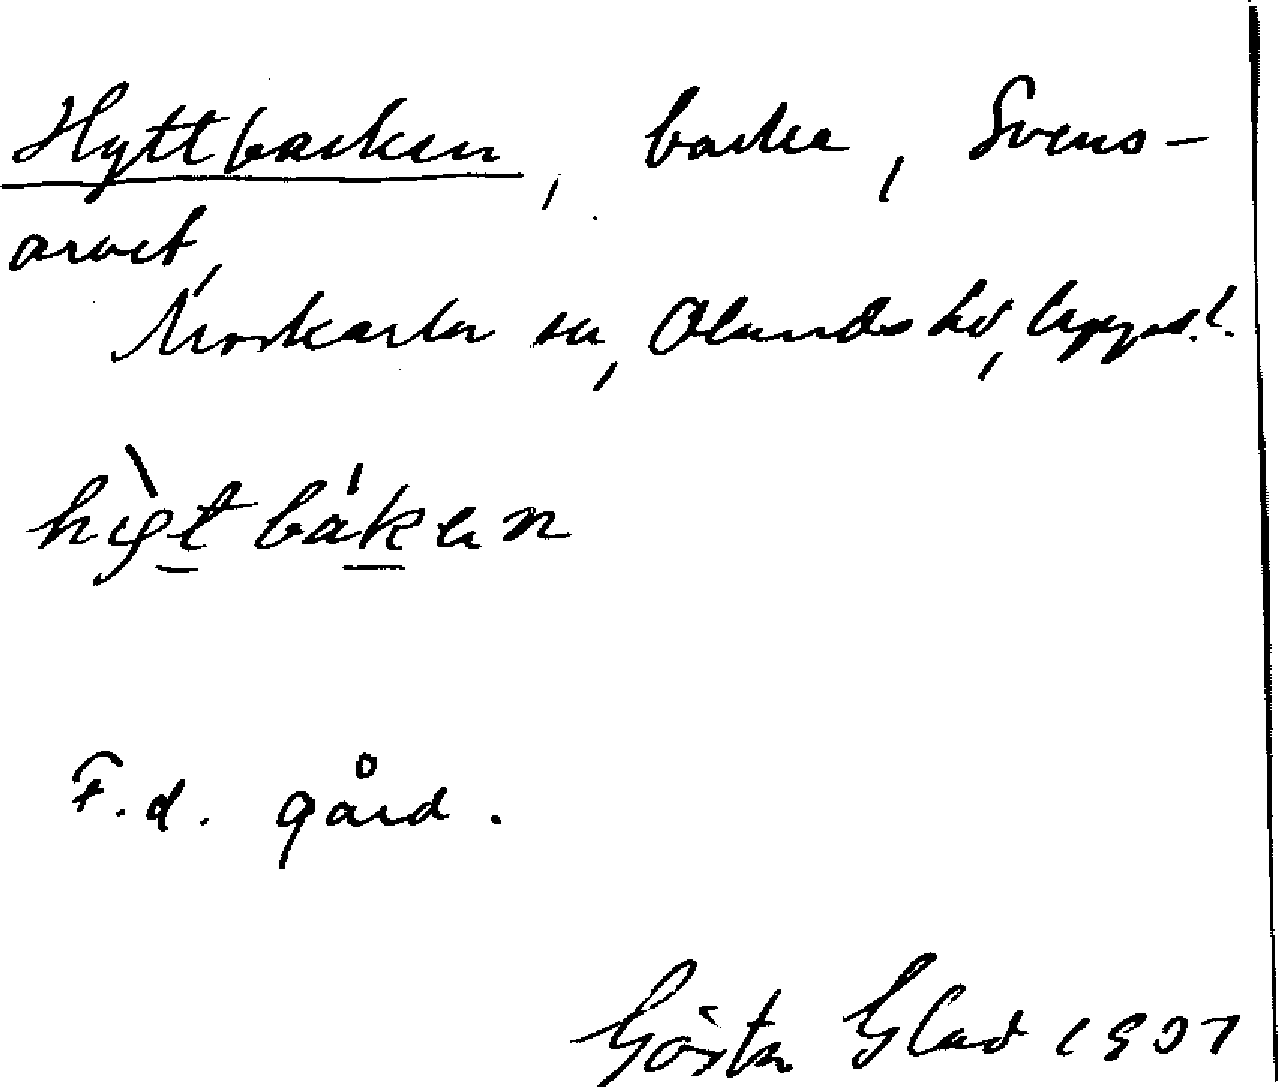 Hyttbacken, backe, Svens-
arvet,
Morkarla sn, Olands hd, Uppsal.
hytbaken
F.d. gård.
Gösta Glad 1937